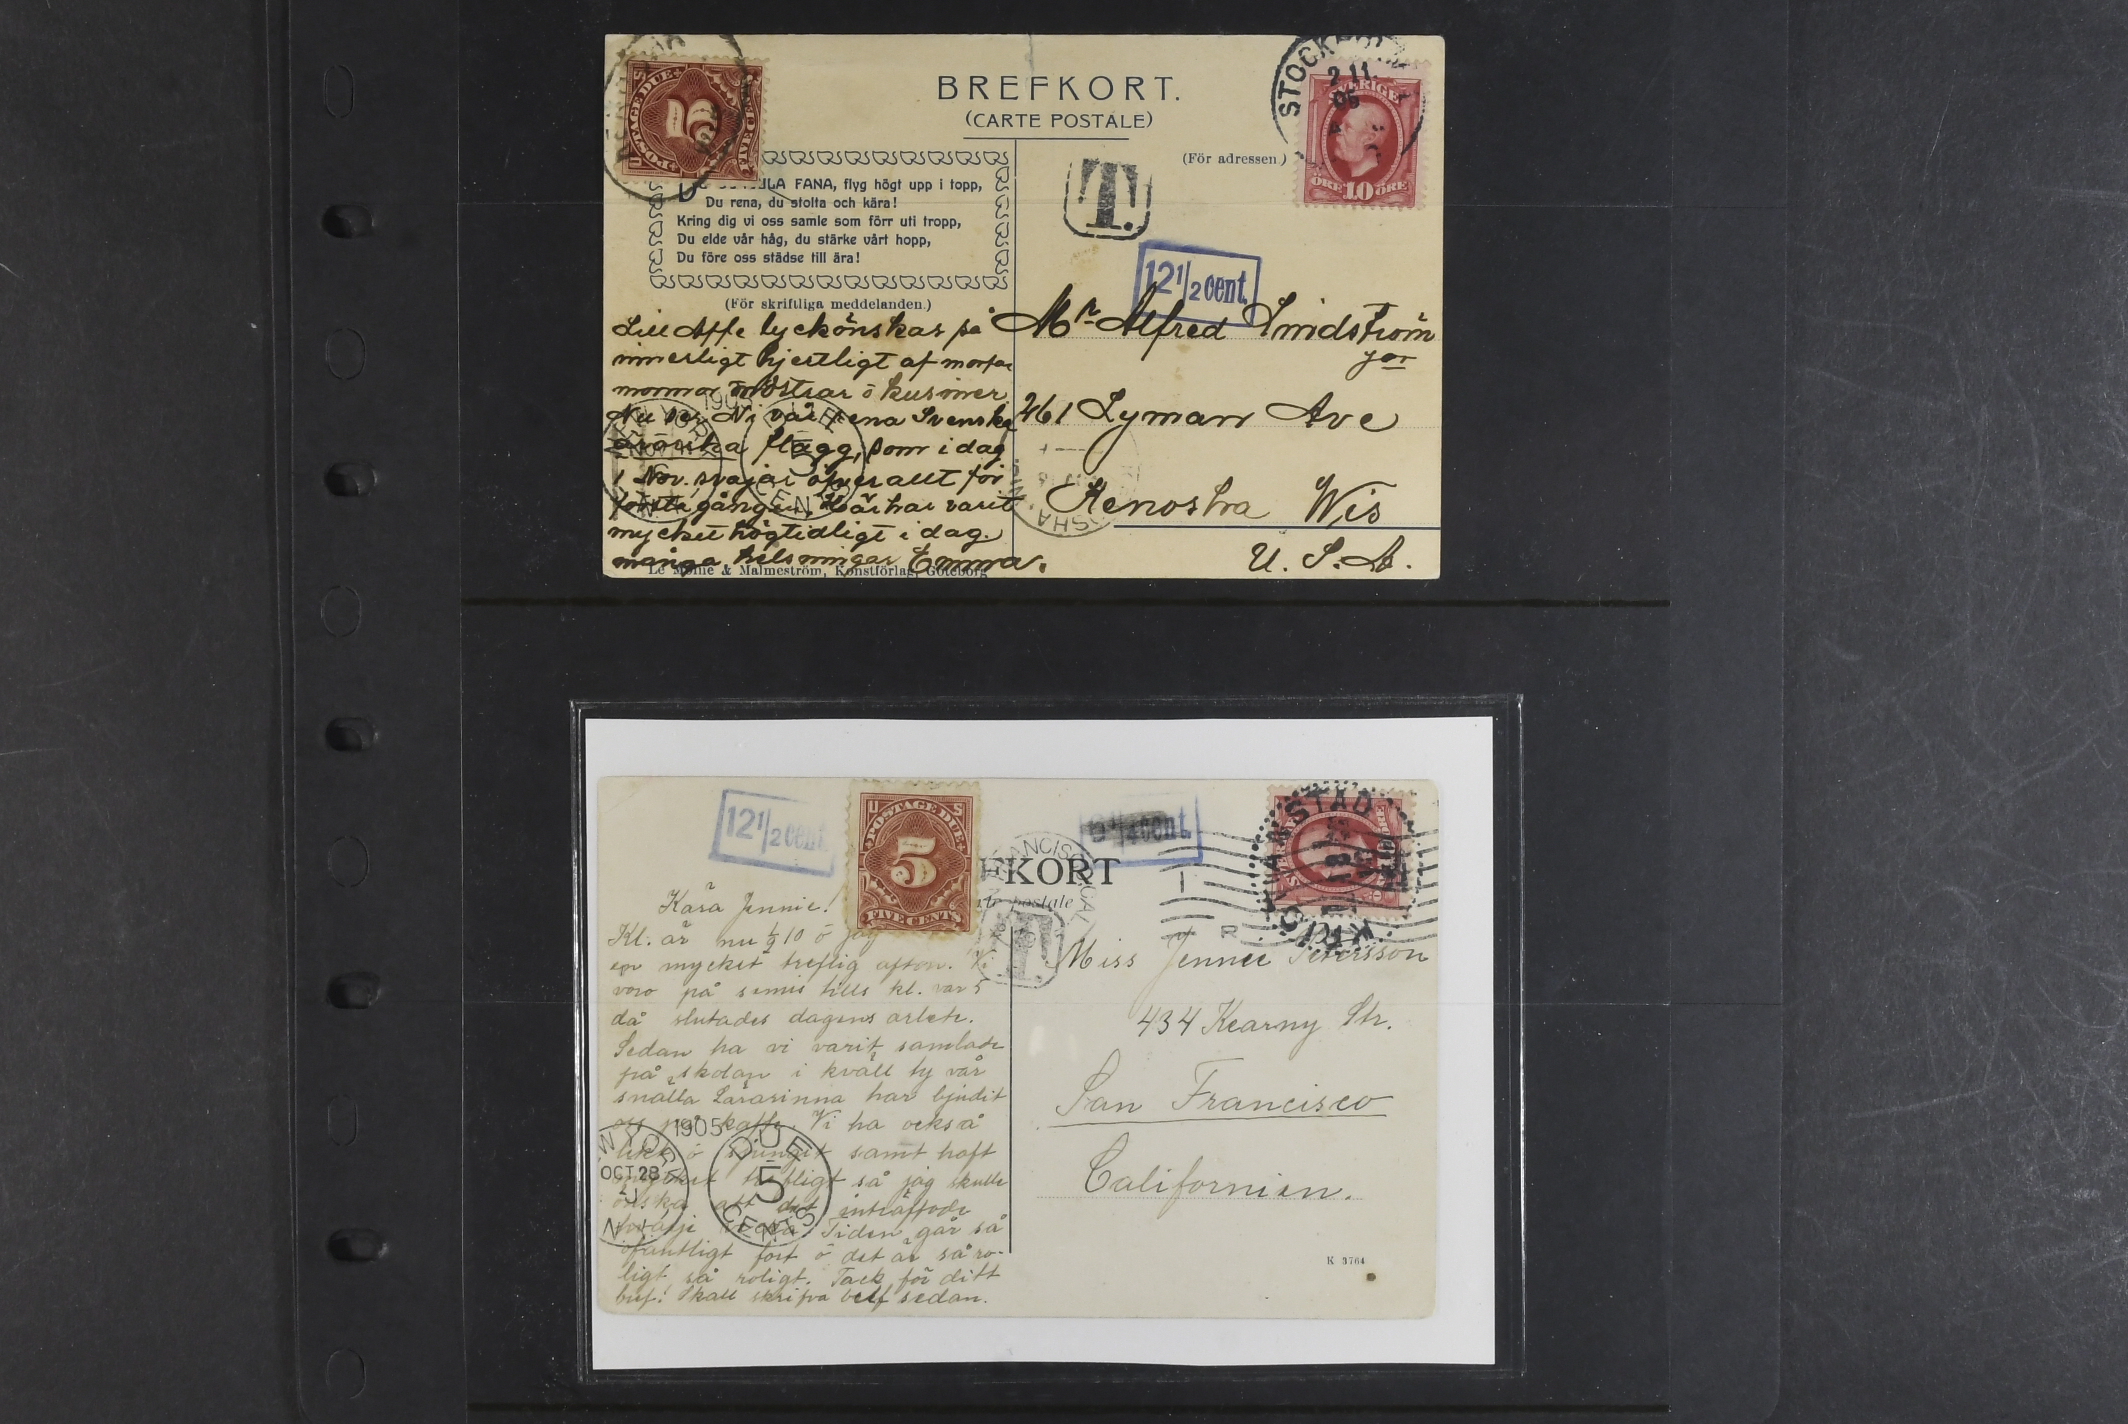 BREFKORT.
(CARTE POSTALE)
(För adressen.)
STOCKHOLM
2 11.
05
SVERIGE
ÖRE 10 ÖRE
POSTAGE DUE
5
T.
12 1/2 cent.
ULA FANA, flyg högt upp i topp,
Du rena, du stolta och kära!
Kring dig vi oss samle som förr uti tropp,
Du elde vår håg, du stärke vårt hopp,
Du före oss städse till ära!
(För skriftliga meddelanden.)
Lill Affe lyckönskas på
innerligt hjertligt af morfar
mormor mostrar o kusiner.
Nu ser Ni vår rena Svenska
flagg, som i dag
1 Nov. svajar öfverallt för
första gången. Här har varit
mycket högtidligt i dag.
många helsningar Emma.
Le Moine & Malmeström, Konstförlag, Göteborg
Mr Alfred Lindström
jor
461 Lyman Ave
Kenosha Wis
U. S. A.
DUE
5
CENTS
12 1/2 cent.
U S
POSTAGE DUE
5
FIVE CENTS
cent.
FKORT
postale
T
Kära Jennie!
Kl. är nu 1/2 10 o jag
en mycket treflig afton. Vi
voro på simis tills kl. var 5
då slutades dagens arbete.
Sedan ha vi varit samlade
på skolan i kväll ty vår
snälla Lärarinna har bjudit
oss på kaffe. Vi ha också
lekt o sjungit samt haft
mycket trefligt så jag skulle
önska att det inträffade
Tiden går så
ofantligt fort o det är så ro-
ligt så roligt. Tack för ditt
bref! Skall skrifva bref sedan.
1905
OCT 28
DUE
5
CENTS
Miss Jennie Petersson
434 Kearny Str.
San Francisco
Californien.
K 3764